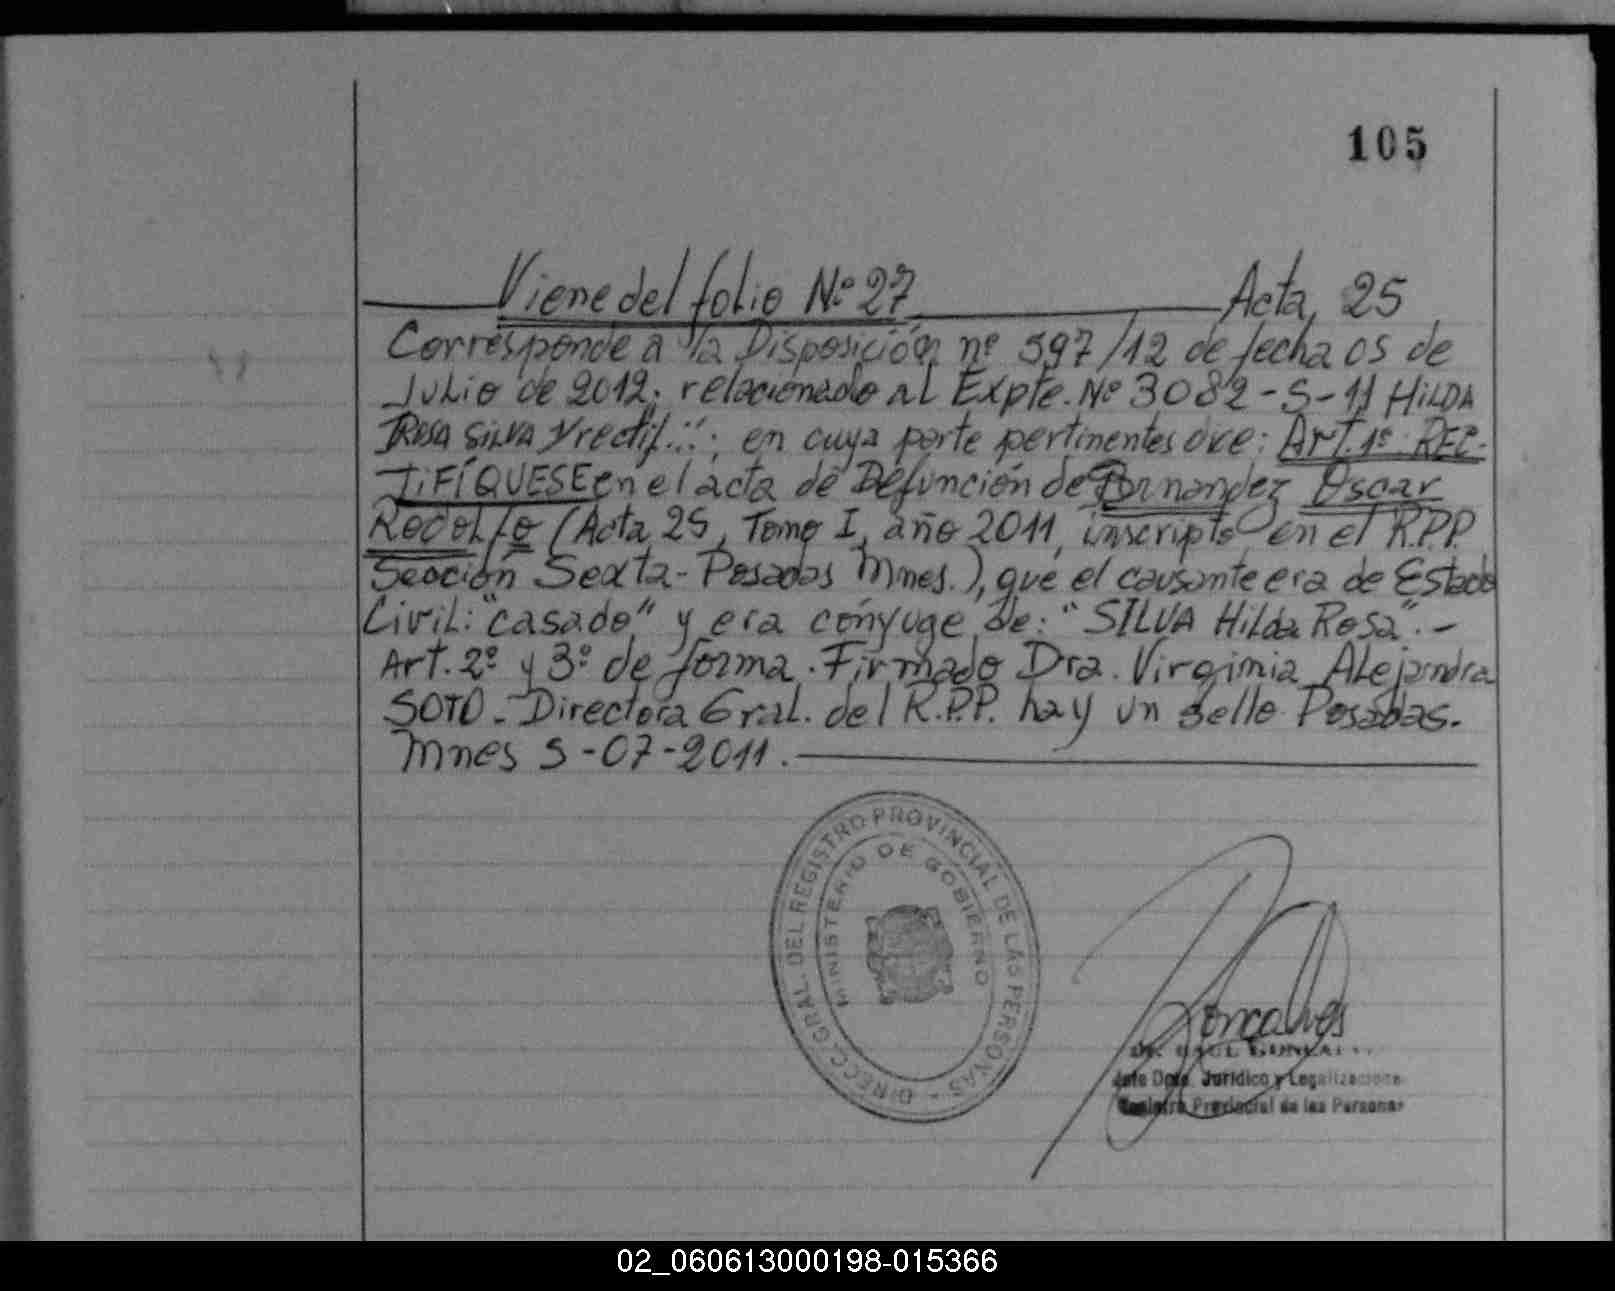 105
Viene del folio Nº 27 Acta 25
Corresponde a la Disposición nº 597/12 de fecha 05 de
Julio de 2012; relacionado al Expte. Nº 3082-S-11 HILDA
ROSA SILVA s/rectif..."; en cuya parte pertinentes dice: ART. 1º: REC-
TIFÍQUESE en el acta de Defunción de Fernandez Oscar
Rodolfo (Acta 25, Tomo I, año 2011, inscripto en el R.P.P.
Sección Sexta - Posadas Mnes.), que el causante era de Estado
Civil: "casado" y era cónyuge de: "SILVA Hilda Rosa".-
Art. 2º y 3º de forma. Firmado Dra. Virginia Alejandra
SOTO - Directora Gral. del R.P.P. hay un sello Posadas.
Mnes 5-07-2011.
DIRECC. GRAL. DEL REGISTRO PROVINCIAL DE LAS PERSONAS
MINISTERIO DE GOBIERNO
Goncalves
Dr. RAUL
Jefe Dpto. Jurídico y Legalizaciones
Registro Provincial de las Personas
02_060613000198-015366